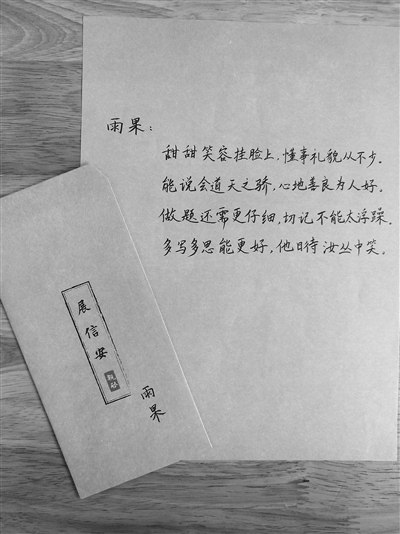 雨果：
甜甜笑容挂脸上，懂事礼貌从不少。
能说会道天之骄，心地善良为人好。
做题还需更仔细，切记不能太浮躁。
多写多思能更好，他日待汝丛中笑。
展信安
雨果